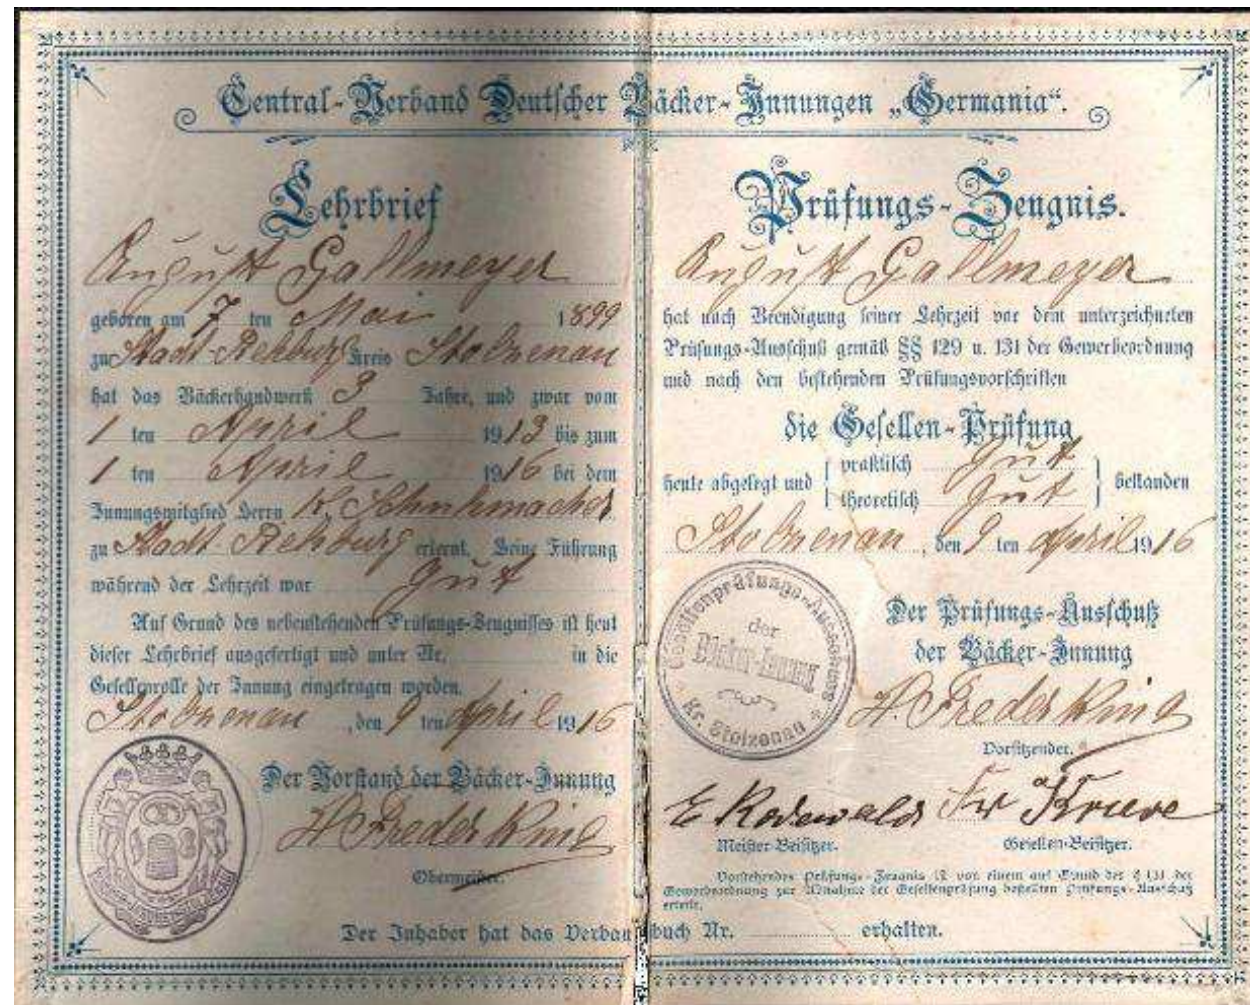 Central-Verband Deutscher Bäcker-Innungen „Germania“.
Lehrbrief
August Gallmeyer
geboren am 7 ten Mai 1899
zu Stadt Rehburg Kreis Stolzenau
hat das Bäckerhandwerk 3 Jahre, und zwar vom
1 ten April 1913 bis zum
1 ten April 1916 bei dem
Innungsmitglied Herrn K. Schuhmacher
zu Stadt Rehburg erlernt. Seine Führung
während der Lehrzeit war gut
Auf Grund des nebenstehenden Prüfungs-Zeugnisses ist heut
dieser Lehrbrief ausgefertigt und unter Nr. in die
Gesellenrolle der Innung eingetragen worden.
Stolzenau, den 9 ten April 1916
Der Vorstand der Bäcker-Innung
H. Frederking
Obermeister.
Prüfungs-Zeugnis.
August Gallmeyer
hat nach Beendigung seiner Lehrzeit vor dem unterzeichneten
Prüfungs-Ausschuß gemäß §§ 129 u. 131 der Gewerbeordnung
und nach den bestehenden Prüfungsvorschriften
die Gesellen-Prüfung
heute abgelegt und { praktisch gut } bestanden
{ theoretisch gut }
Stolzenau, den 9 ten April 1916
Gesellenprüfungs-Ausschuss
der
Bäcker-Innung
Kr. Stolzenau
Der Prüfungs-Ausschuß
der Bäcker-Innung
H. Frederking
Vorsitzender.
E Rodewald Fr Kruse
Meister-Beisitzer. Gesellen-Beisitzer.
Vorstehendes Prüfungs-Zeugnis ist von einem auf Grund des § 131 der
Gewerbeordnung zur Abnahme der Gesellenprüfung bestellten Prüfungs-Ausschuß
erteilt.
Der Inhaber hat das Verbandsbuch Nr. erhalten.